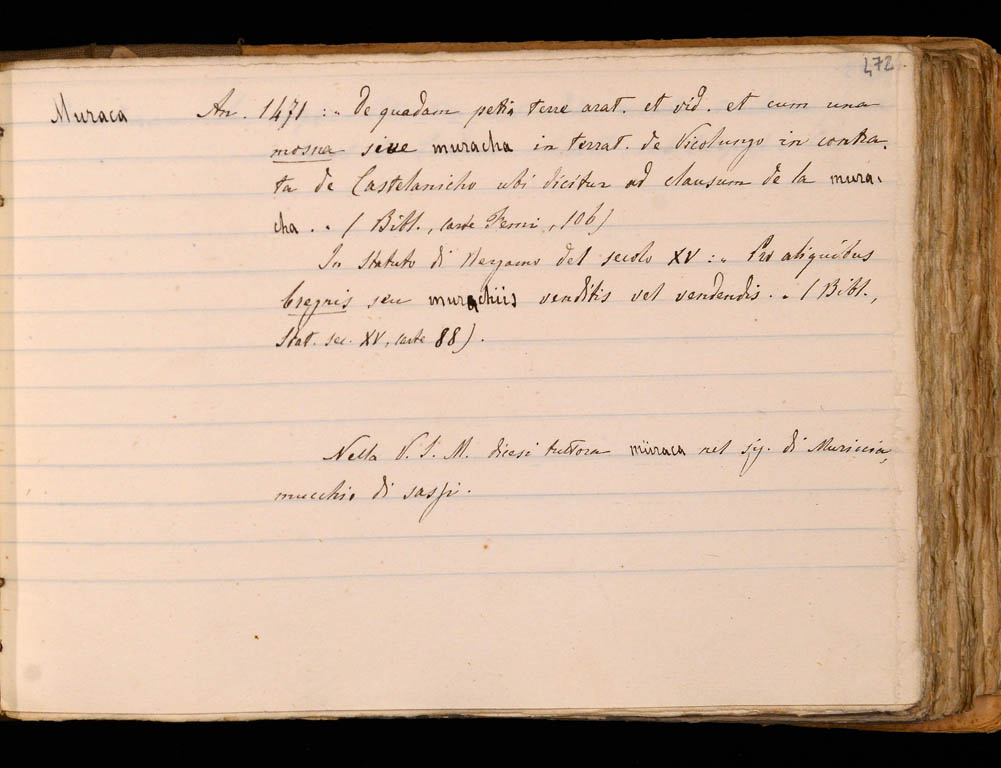 472
Muraca An. 1471 :„ De quadam petia terre arat. et vid. et cum una
mosna sive muracha in terrat. de Vicolungo in contra-
ta de Castelanicho ubi dicitur ad clausum de la mura-
cha . „ ( Bibl., carte 106)
In Statuto di Vergamo del secolo XV :„ Pro aliquibus
bregnis seu murachiis venditis vel vendendis . „ ( Bibl.,
Stat. sec. XV, carte 88) .
Nella V. S. M. dicesi tuttora müraca nel sig. di Muriccia,
mucchio di sassi.